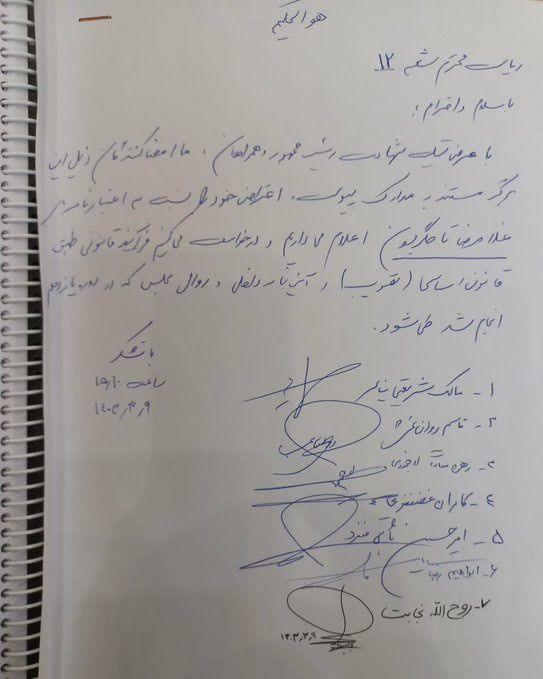 هوالحکیم
ریاست محترم شعبه ۱۲
با سلام و احترام؛
با عرض تسلیت شهادت رئیس جمهور و همراهان، ما امضاکنندگان ذیل این
برگه مستند به مدارک پیوست، اعتراض خود را نسبت به اعتبارنامه
غلامرضا تاجگردون اعلام می داریم و درخواست می کنیم فرآیند قانونی طبق
قانون اساسی و آئین نامه داخلی و روال مجلس که در دوره یازدهم
انجام شد طی شود.
با تشکر
ساعت ۱۵/۱۰
۱۴۰۳,۳,۹
۱- مالک شریعتی نیاسر
۲- قاسم روانبخش
۳- زهره سادات لاجوردی
۴- کامران غضنفری
۵- امیرحسین ثابتی منفرد
۶- ابراهیم رضایی
۷- روح الله نجابت
۱۴۰۳,۳,۹